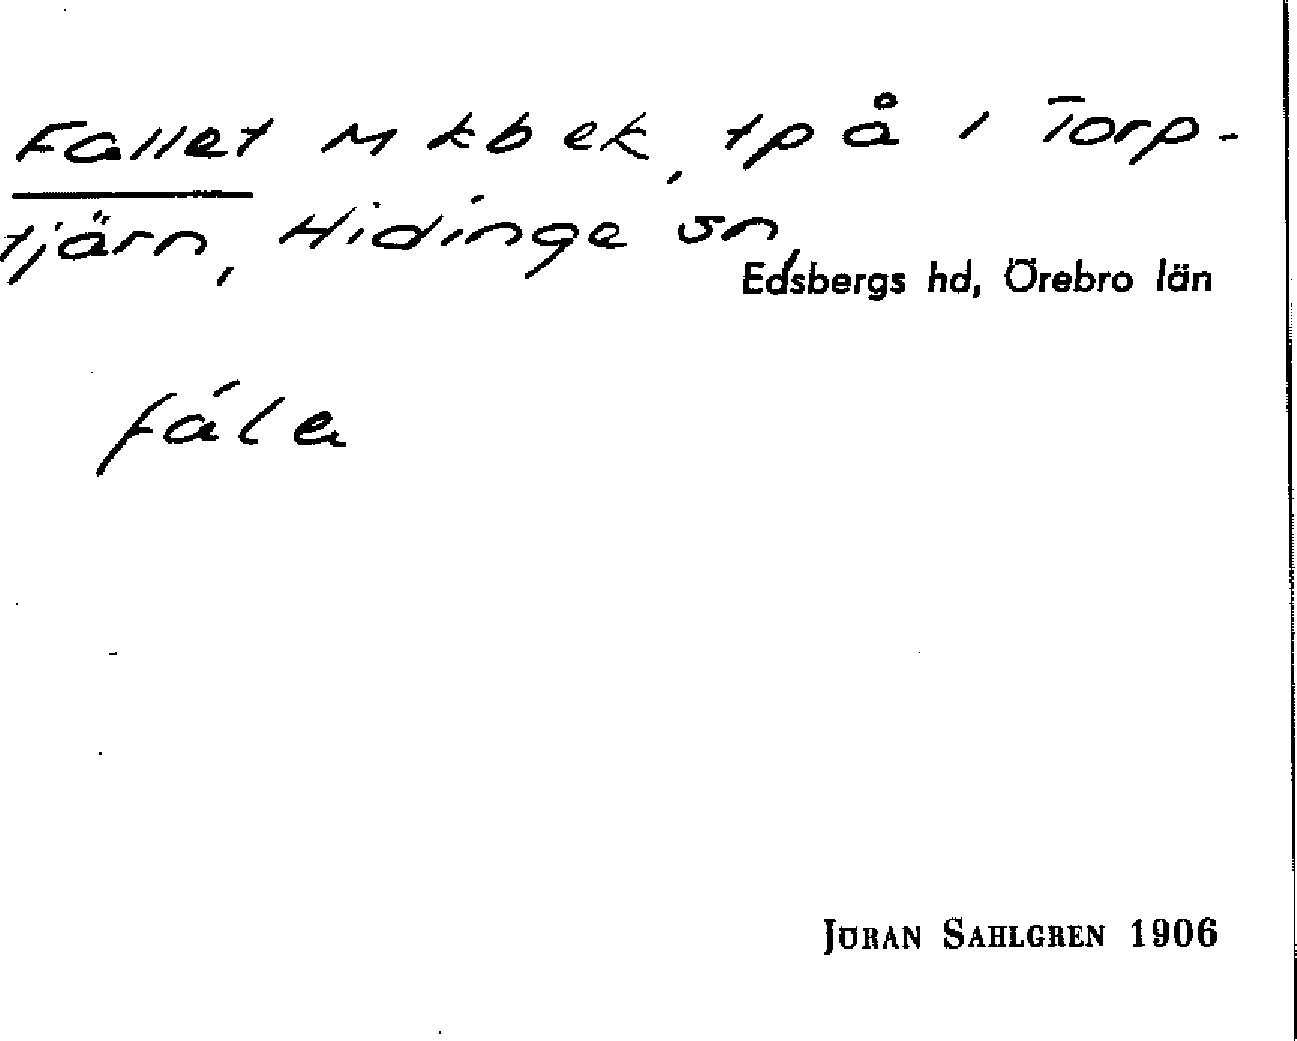 Fallet M kb ek, tp å i Torp-
tjärn, Hidinge sn,
Edsbergs hd, Örebro län
fála
JÖRAN SAHLGREN 1906